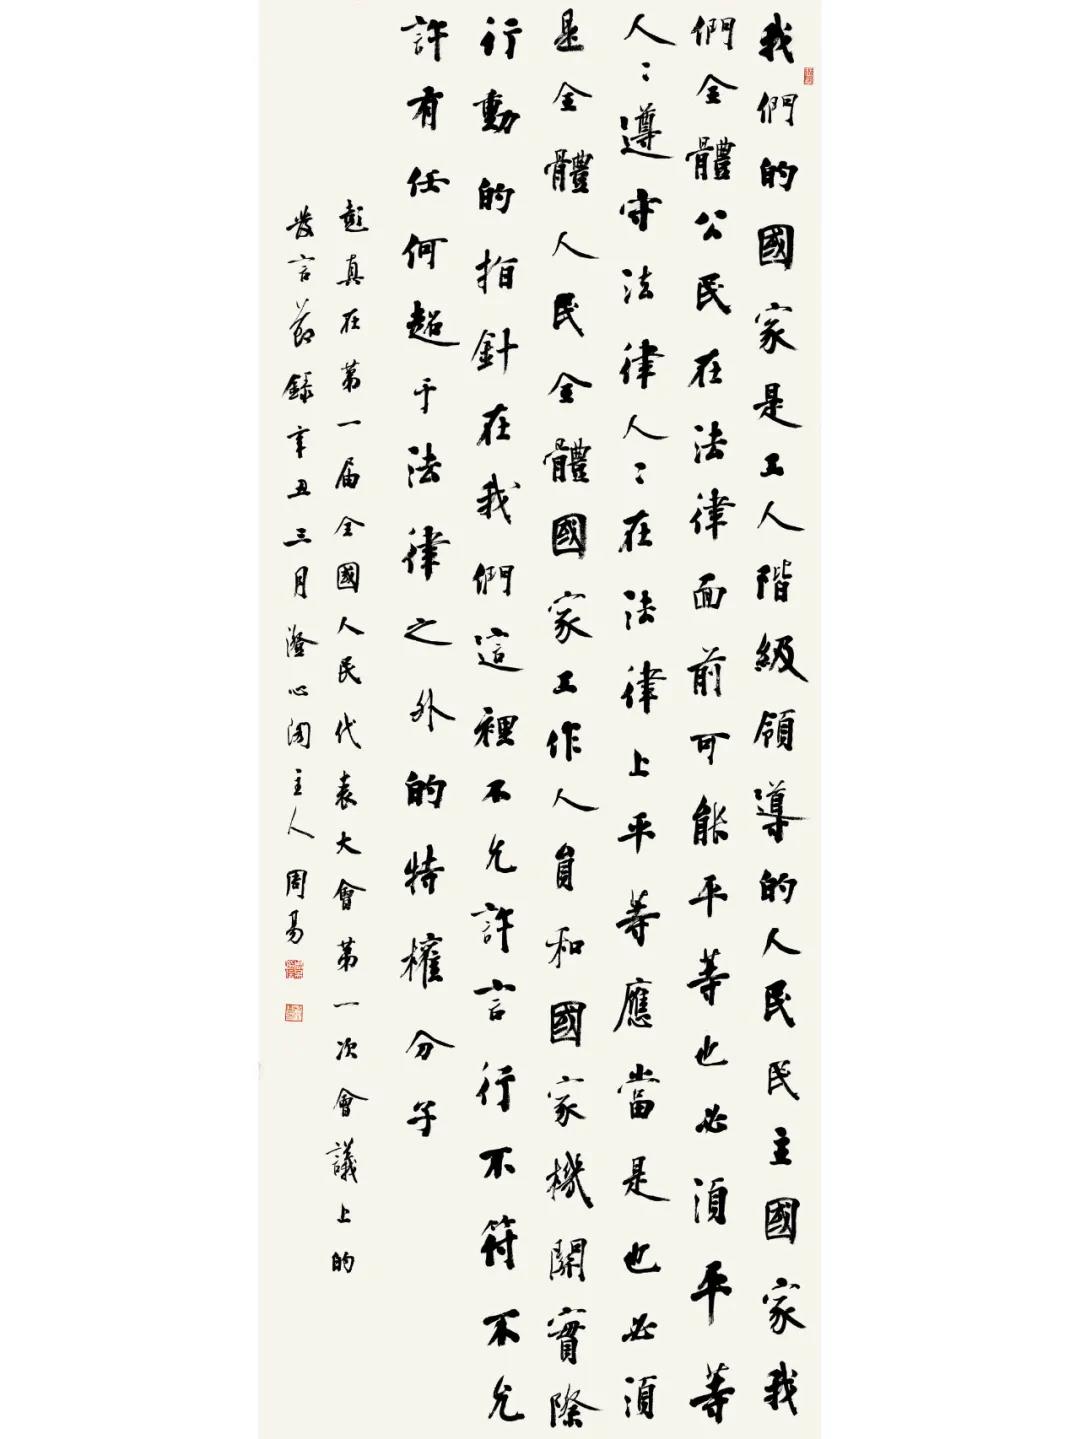 我們的國家是工人階級領導的人民民主國家我
們全體公民在法律面前可能平等也必須平等
人〻遵守法律人〻在法律上平等應當是也必須
是全體人民全體國家工作人員和國家機關實際
行動的指針在我們這裡不允許言行不符不允
許有任何超于法律之外的特權分子
彭真在第一届全國人民代表大會第一次會議上的
發言節錄辛丑三月澄心閣主人周易